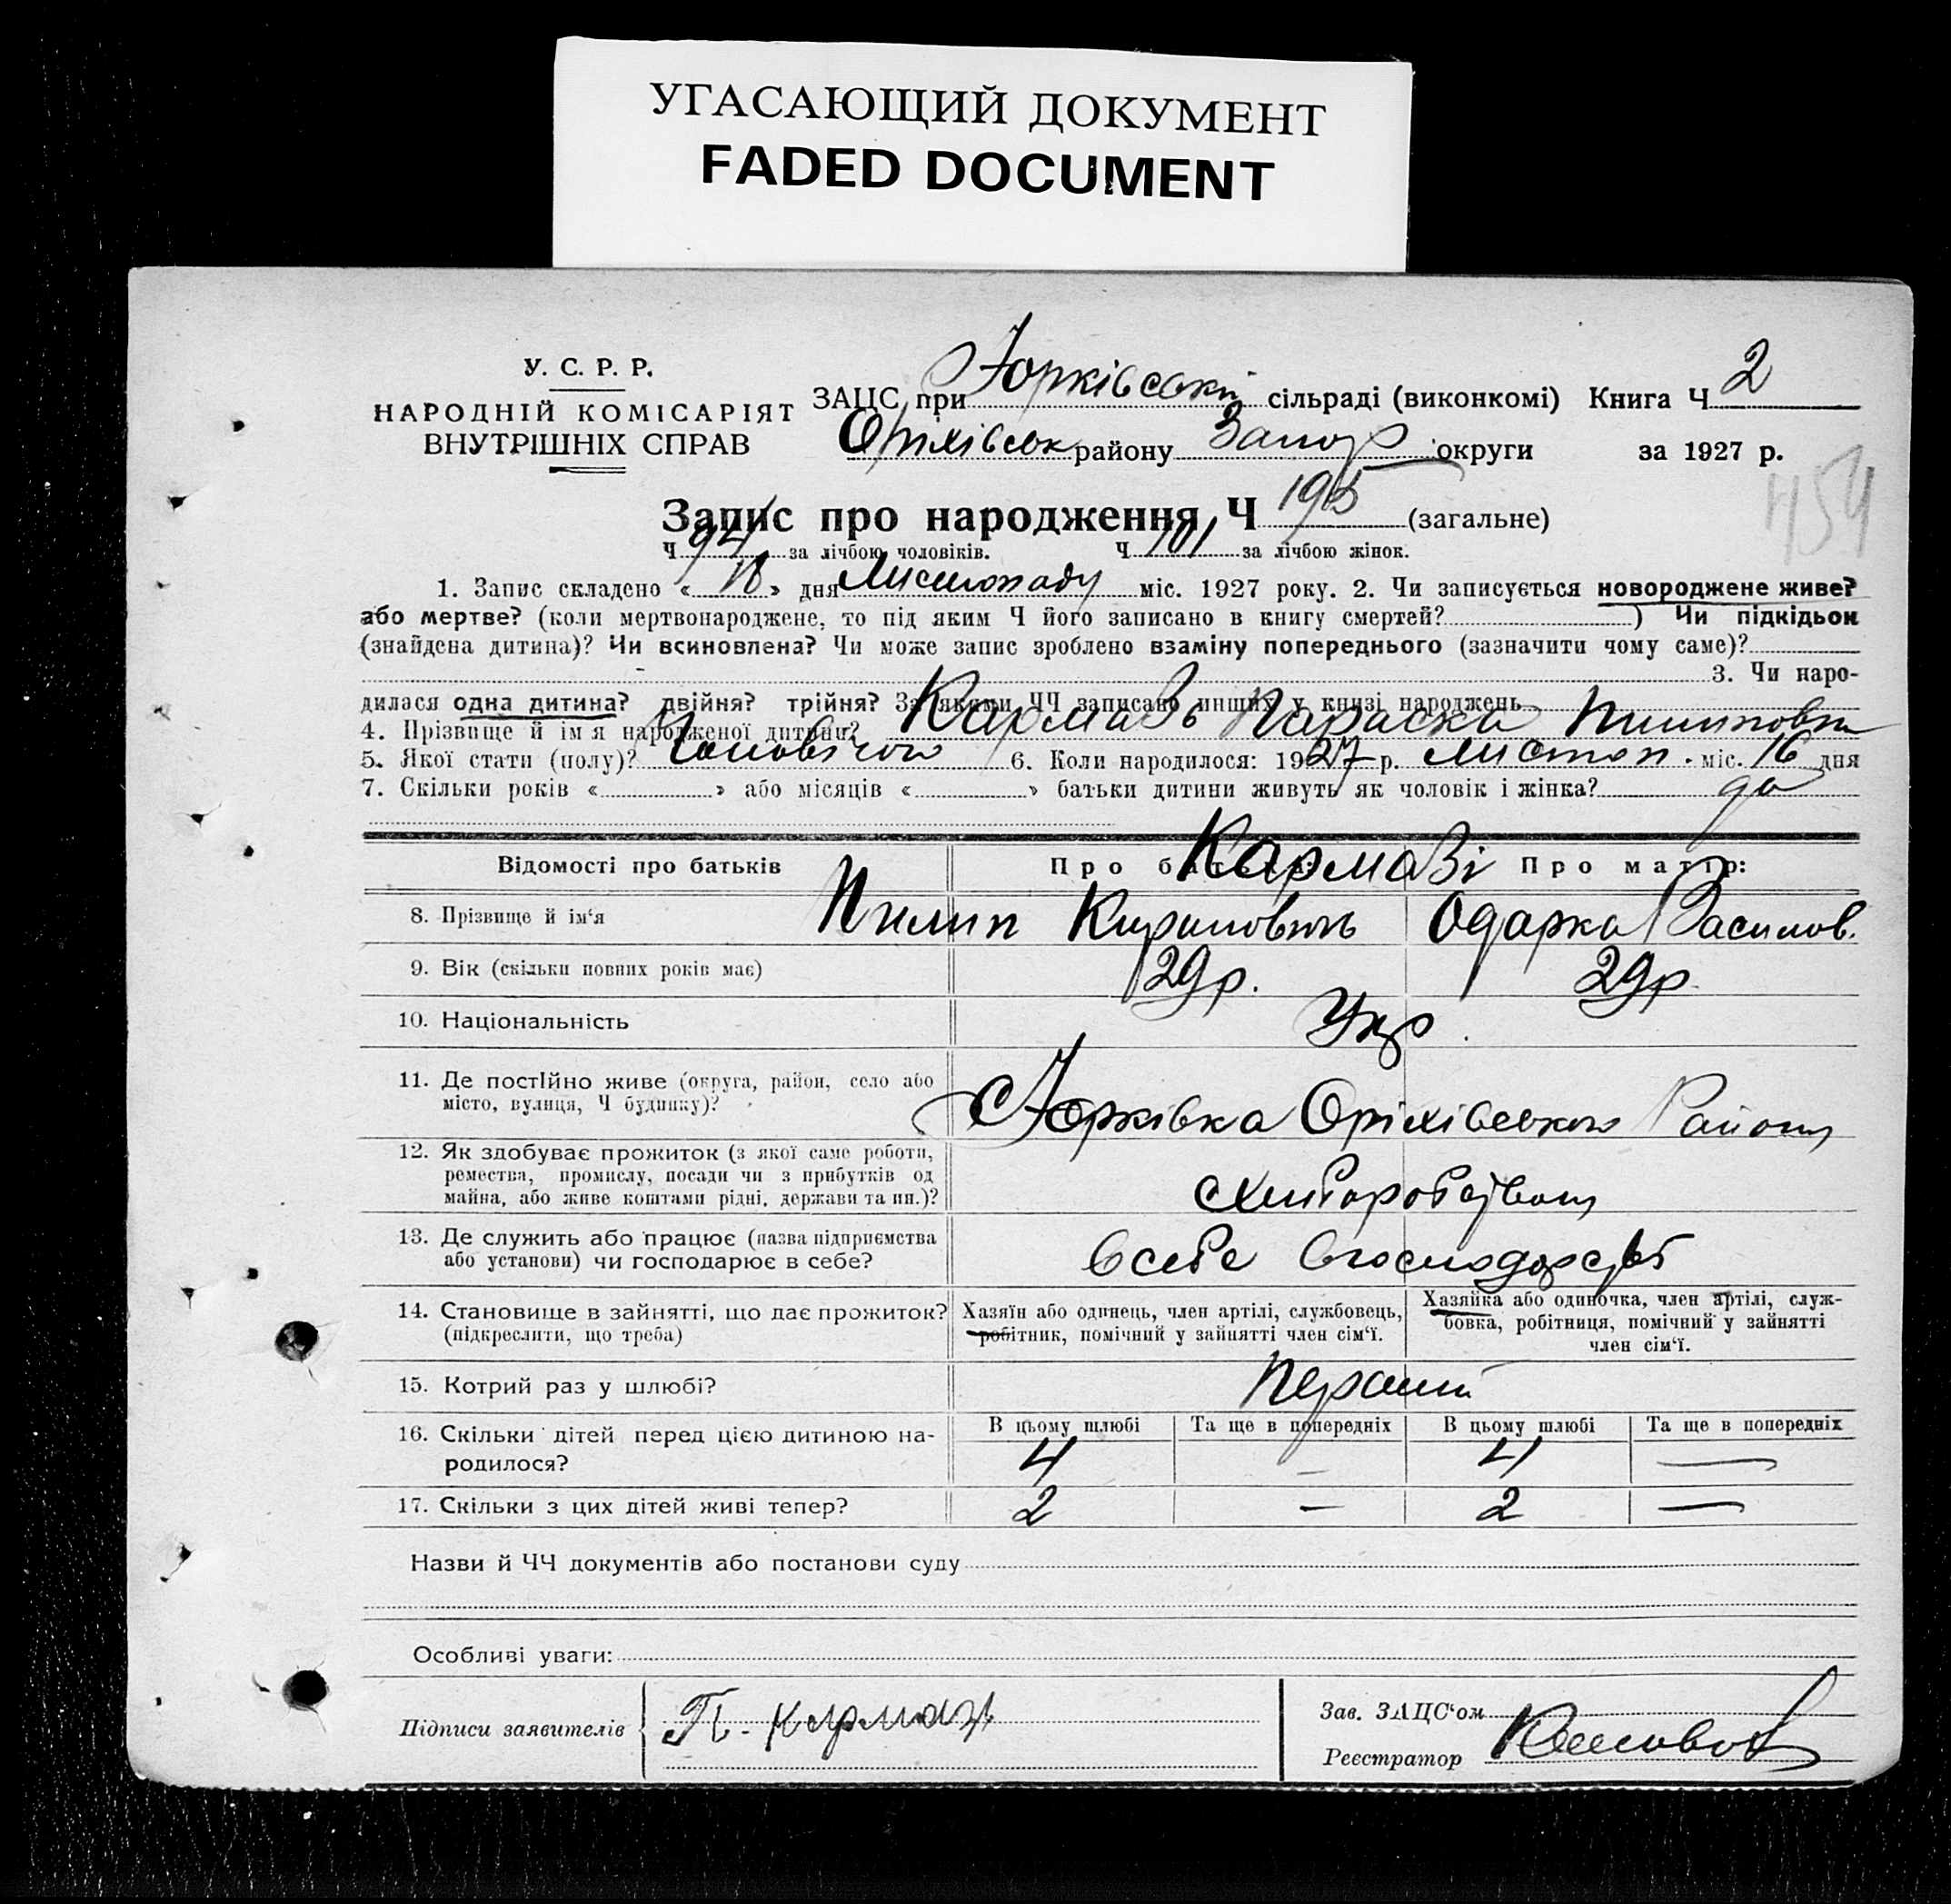 УГАСАЮЩИЙ ДОКУМЕНТ
FADED DOCUMENT
У. С. Р. Р.
НАРОДНІЙ КОМІСАРІЯТ
ВНУТРІШНІХ СПРАВ
ЗАЦС при Юрківській сільраді (виконкомі) Книга Ч 2
Оріхівськ району Запор округи за 1927 р.
454
Запис про народження Ч 195 (загальне)
Ч 94 за лічбою чоловіків. Ч 101 за лічбою жінок.
1. Запис складено « » дня Листопаду міс. 1927 року. 2. Чи записується новороджене живе?
або мертве? (коли мертвонароджене, то під яким Ч його записано в книгу смертей? ) Чи підкідьок
(знайдена дитина)? Чи всиновлена? Чи може запис зроблено взаміну попереднього (зазначити чому саме)?
3. Чи наро-
дилася одна дитина? двійня? трійня? За якими ЧЧ записано инших у книзі народжень
4. Прізвище й імя народженої дитини? Кармазь Параска Пилиповна
5. Якої стати (полу)? Чоловічої 6. Коли народилося: 1927 р. листоп. міс. 16 дня
7. Скільки років « » або місяців « » батьки дитини живуть як чоловік і жінка? да
Відомості про батьків Про батька: Кармазі Про матір:
8. Прізвище й ім‘я Пилип Кирилович Одарка Василов.
9. Вік (скільки повних років має) 29р. 29р.
10. Національність Укр.
11. Де постійно живе (округа, район, село або
місто, вулиця, Ч будинку)? с Юрківка Оріхівського Району
12. Як здобуває прожиток (з якої саме роботи,
ремества, промислу, посади чи з прибутків од
майна, або живе коштами рідні, держави та ин.)?
13. Де служить або працює (назва підприємства
або установи) чи господарює в себе? в себе в господарстві
14. Становище в зайнятті, що дає прожиток?
(підкреслити, що треба)
Хазяїн або одинець, член артілі, службовець,
робітник, помічний у зайнятті член сім‘ї.
Хазяйка або одиночка, член артілі, служ-
бовка, робітниця, помічний у зайнятті
член сім‘ї.
15. Котрий раз у шлюбі? Перший
В цьому шлюбі Та ще в попередніх В цьому шлюбі Та ще в попередніх
16. Скільки дітей перед цією дитиною на-
родилося? 4 — 4 —
17. Скільки з цих дітей живі тепер? 2 — 2 —
Назви й ЧЧ документів або постанови суду
Особливі уваги:
Підписи заявителів П. Кармазь
Зав. ЗАЦС‘ом
Реєстратор